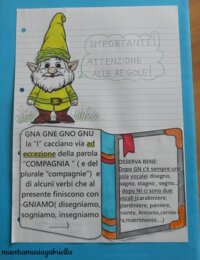 IMPORTANTE!
ATTENZIONE
ALLE REGOLE!
GNA GNE GNO GNU
la "I" cacciano via ad
eccezione della parola
"COMPAGNIA " ( e del
plurale "compagnie") e
di alcuni verbi che al
presente finiscono con
-GNIAMO( disegniamo,
sogniamo, insegniamo
OSSERVA BENE:
Dopo GN c'è sempre una
sola vocale( disegno,
bagno, stagno , segno...
dopo NI ci sono due
vocali (carabiniere,
giardiniere, paniere,
niente, Antonio,cerniera,
matrimonio....)
maestramariagabriella